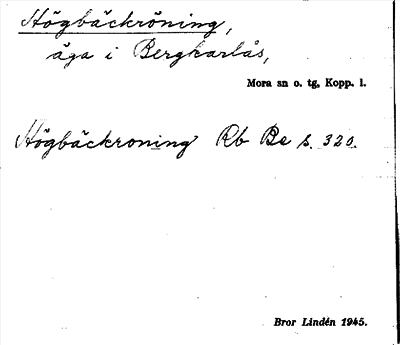 Högbäckröning,
äga i Bergkarlås,
Mora sn o. tg, Kopp. l.
Högbäckroning Rb Be s. 320.
Bror Lindén 1945.